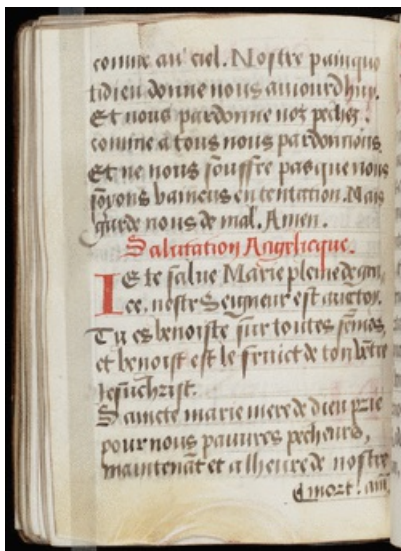 comme au ciel. Nostre pain quo
tidien donne nous auiourdhuy.
Et nous pardonne noz pechez.
comme a tous nous pardonnons.
Et ne nous souffre pas que nous
soyons vaincus en tentation. Mais
garde nous de mal. Amen.
Salutation Angelicque.
IE te salue Marie pleine de gra
ce. nostre Seigneur est auec toy.
Tu es benoiste sur toutes fẽmes,
et benoist est le fruict de ton vẽtre
Iesuchrist.
Saincte marie mere de dieu prie
pour nous pauures pecheurs,
maintenãt et a lheure de nostre
mort. amẽ